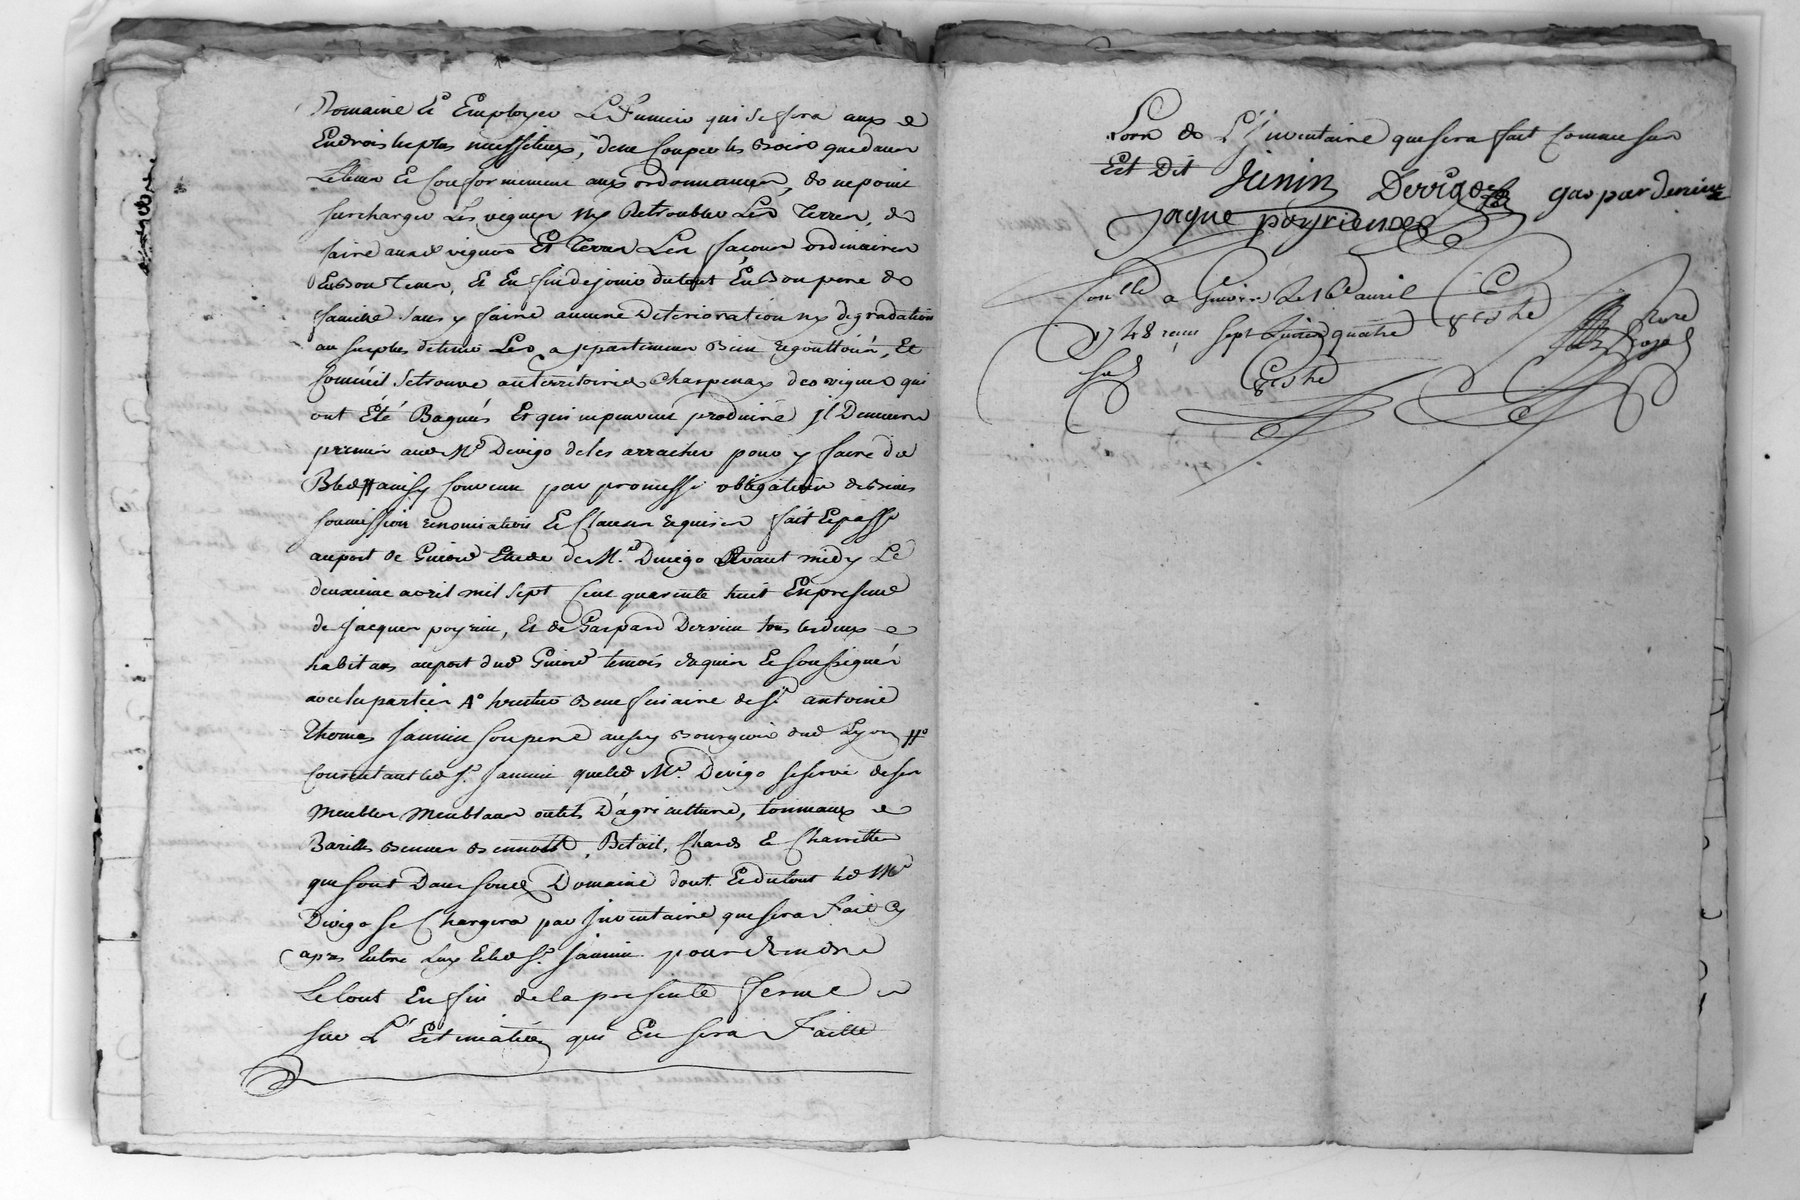 Domaine et Employer Le Fumier qui se fera aux d
Endrois les plus nessesseux, de ne Couper les Bois que dans
Le tems et Conformement aux ordonnances, de ne point
surcharger Les vignes ny Retroubler Les Terres, de
faire auxd vignes Et Terres Les façons ordinaires
En Bon tems, Et En fin de jouir du tout En Bon pere de
famille sans y faire aucune Deterioration ny degradation
au surplus de tenir Les appartimens Bien Regouttoiés, Et
Comme il se trouve au territoire Charpenay des vignes qui
ont Été Et qui ne peuvent produire jl Demeure
permis aud Mr Derigo de les arracher pour y faire du
Bled # ainsy Convenu par promesse obligation de Biens
soumission renonciation Et Clauses requises fait Et passé
au port de Guiere Etude de M.e Derigo Avant midy Le
deuxieme avril mil sept Cent quarente huit En presence
de jacques poyrieu, Et de Gaspard Dervieu tous les deux
habitans au port dud Guiere temoins requis Et soussignés
avec les parties A°
Thomas Jannin son pere aussy Bourgeois dud Lyon #°
Consentant led Sr. Jannin que led Mr. Derigo se serve de ses
Meubles Meublans outils D'agriculture, tonneaux
Barils Bennes Bennott, Betail, Chards Et Charrettes
qui sont Dans son d Domaine dont Et du tout led Mr
Derigo se Chargera par jnventaire que sera Fait Cy
apres Entre Luy Et led Sr. Jannin pour Rendre
Le tout En fin de la presente ferme
sur L'Estimation qui En sera Faitte
Lors de L'jnventaire que sera fait Comme sus
Est Dit Janin Derrigo gaspar derieux
jaque poyrieux
Con.lle a Guiere Le 16e avril
1748 recu sept livres quatre
sols